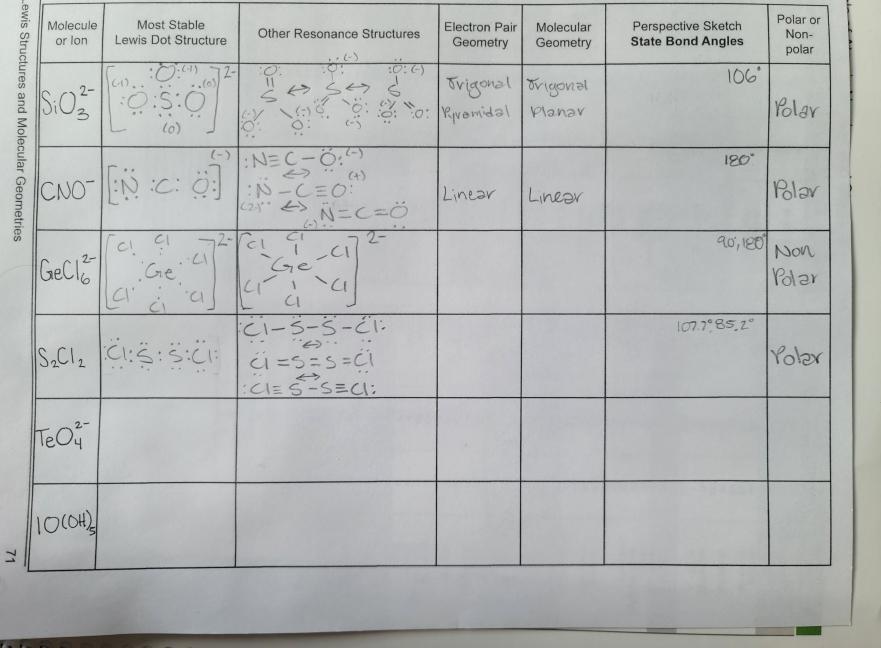 Lewis Structures and Molecular Geometries
71
Molecule or Ion
Most Stable Lewis Dot Structure
Other Resonance Structures
Electron Pair Geometry
Molecular Geometry
Perspective Sketch
State Bond Angles
Polar or Non-polar
SiO3 2-
[:O: (-1) (-1) :O:S:O (0) (0)] 2-
:O: = S ↔ :O: (-) S ↔ :O: (-) S
Trigonal Pyramidal
Trigonal Planar
106°
Polar
CNO-
[:N :C: O:] (-)
:N≡C-O: (-)
↔
:N-C≡O: (+)
(2-) ↔ N=C=O (-)
Linear
Linear
180°
Polar
GeCl6 2-
[Cl Cl Cl Ge Cl Cl Cl] 2-
[Cl Cl Cl Ge Cl Cl Cl] 2-
90°, 180°
Non Polar
S2Cl2
:Cl:S:S:Cl:
:Cl-S-S-Cl:
↔
Cl=S=S=Cl
↔
:Cl≡S-S≡Cl:
107.7° 85.2°
Polar
TeO4 2-
IO(OH)5